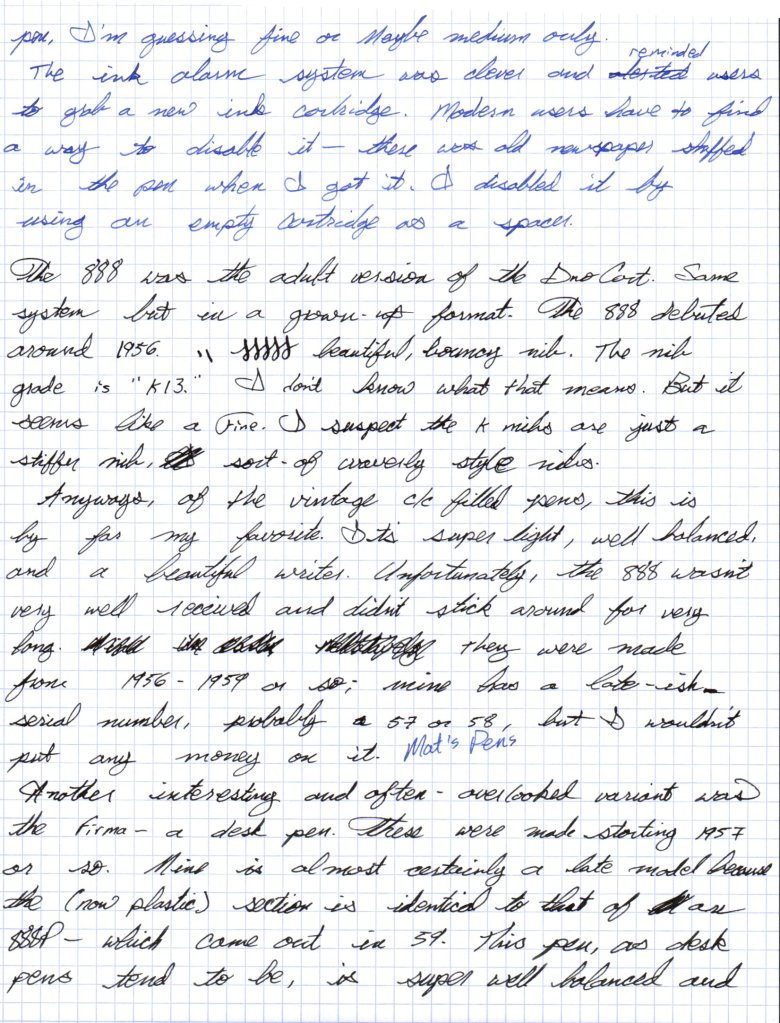 pen, I'm guessing fine or Maybe medium only.
reminded
The ink alarm system was clever and alerted users
to grab a new ink cartridge. Modern users have to find
a way to disable it – there was old newspaper stuffed
in the pen when I got it. I disabled it by
using an empty cartridge as a spacer.
The 888 was the adult version of the DuoCart. Same
system but in a grown-up format. The 888 debuted
around 1956. beautiful, bouncy nib. The nib
grade is "K13." I don't know what that means. But it
seems like a Fine. I suspect the K nibs are just a
stiffer nib, sort-of waverly style nibs.
Anyways, of the vintage c/c filled pens, this is
by far my favorite. It's super light, well balanced,
and a beautiful writer. Unfortunately, the 888 wasn't
very well received and didn't stick around for very
long. They were made
from 1956 - 1959 or so; mine has a late-ish
serial number, probably a 57 or 58, but I wouldn't
put any money on it. Mat's Pens
Another interesting and often-overlooked variant was
the Firma – a desk pen. These were made starting 1957
or so. Mine is almost certainly a late model because
the (now plastic) section is identical to that of an
888P – which came out in 59. This pen, as desk
pens tend to be, is super well balanced and